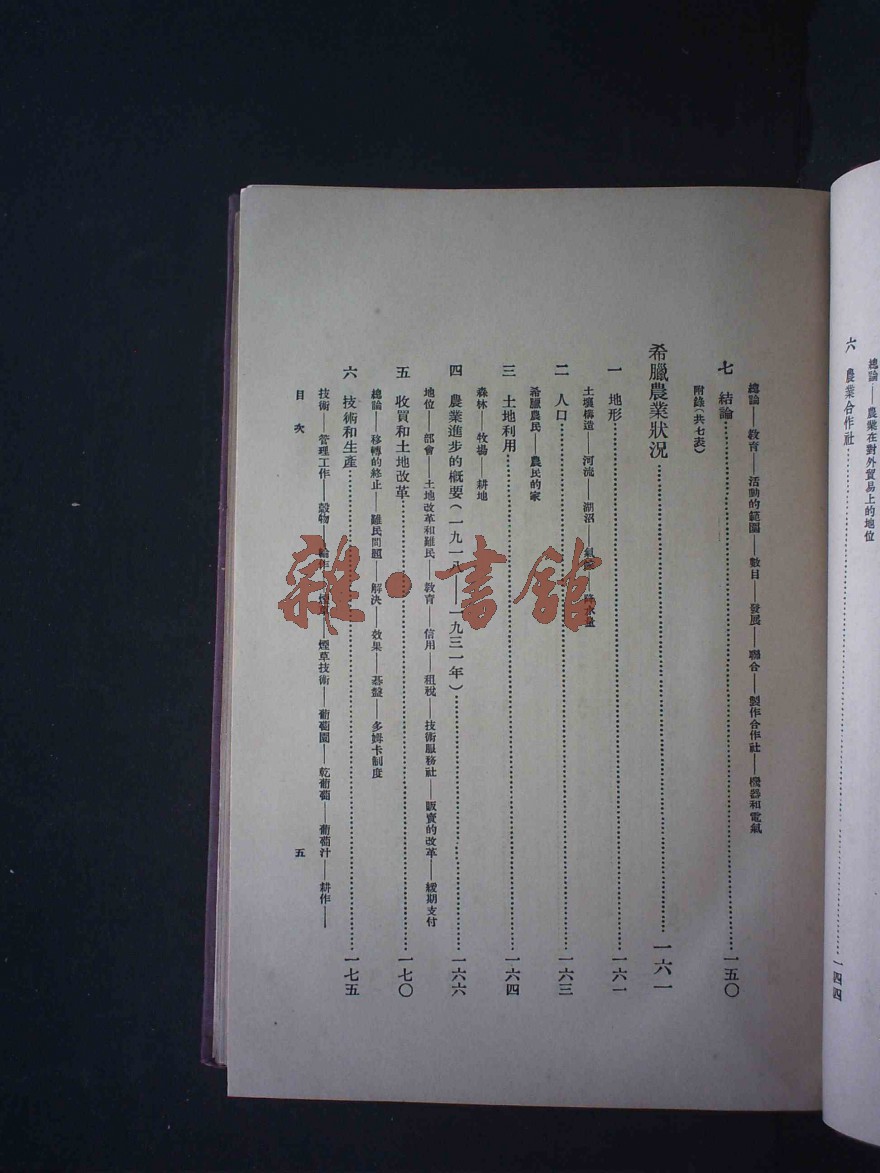 六　農業合作社……一四四
總論——農業在對外貿易上的地位
總論——教育——活動的範圍——數目——發展——聯合——製作合作社——機器和電氣
七　結論……一五〇
附錄(共七表)
希臘農業狀況……一六一
一　地形……一六一
土壤構造——河流——湖沼——氣候——降水量
二　人口……一六三
希臘農民——農民的家
三　土地利用……一六四
森林——牧場——耕地
四　農業進步的概要(一九一八——一九三一年)……一六六
地位——部會——土地改革和難民——教育——信用——租稅——技術服務社——販賣的改革——緩期支付
五　收買和土地改革……一七〇
總論——移轉的終止——難民問題——解決——效果——碁盤——多姆卡制度
六　技術和生產……一七五
技術——管理工作——穀物——輪作——煙草——煙草技術——葡萄園——乾葡萄——葡萄汁——耕作——
目次
五
雜·書館